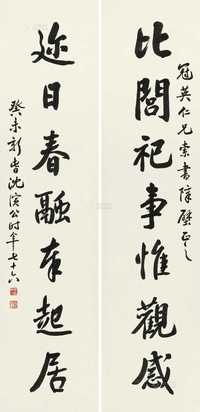 冠英仁兄索書障壁正之
比閭祀事惟觀感
迩日春融奉起居
癸未新春沈演公时年七十六